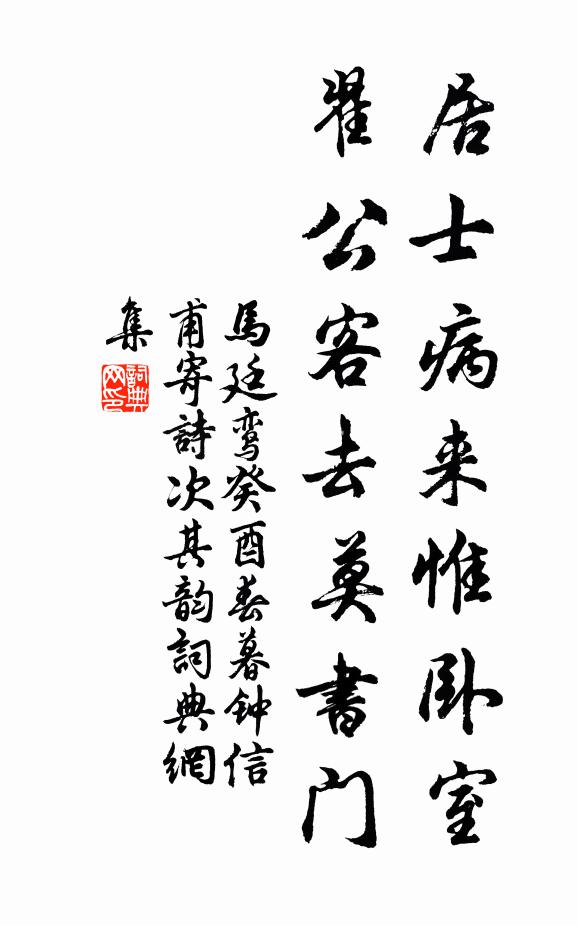 居士病来惟卧室
翟公客去莫書门
馬廷鸾癸酉春暮钟信
甫寄詩次其韵詞典網
集
詞典
网印